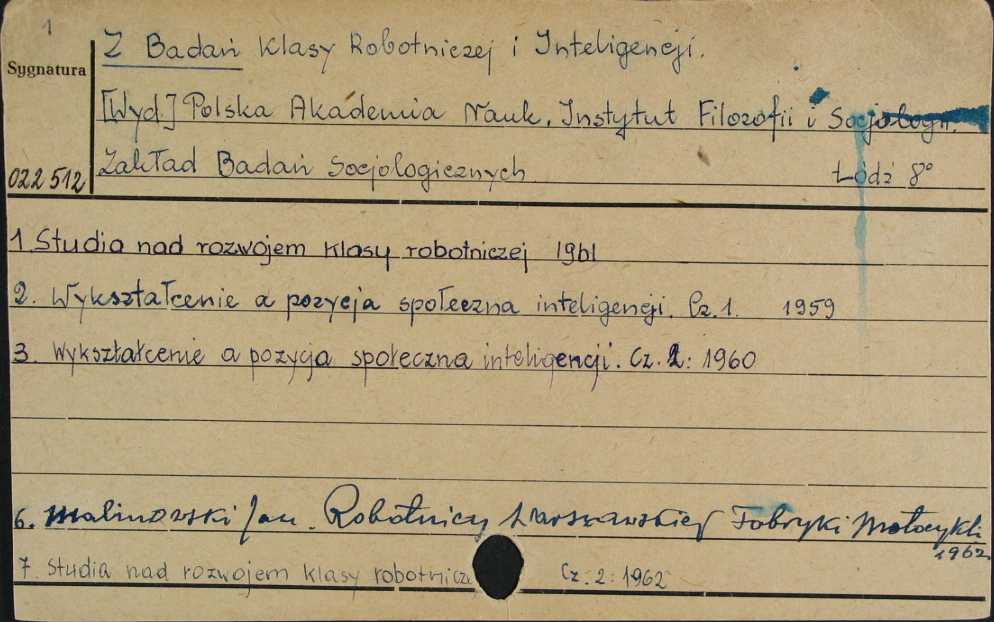 1
Z Badań Klasy Robotniczej i Inteligencji.
Sygnatura
[Wyd.] Polska Akademia Nauk. Instytut Filozofii i Socjologii.
Zakład Badań Socjologicznych Łódź 8°
022 512
1. Studia nad rozwojem klasy robotniczej 1961
2. Wykształcenie a pozycja społeczna inteligencji. Cz. 1. 1959
3. Wykształcenie a pozycja społeczna inteligencji. Cz. 2: 1960
6. Malinowski Jan. Robotnicy Warszawskiej Fabryki Motocykli
1962.
7. Studia nad rozwojem klasy robotnicze Cz. 2: 1962